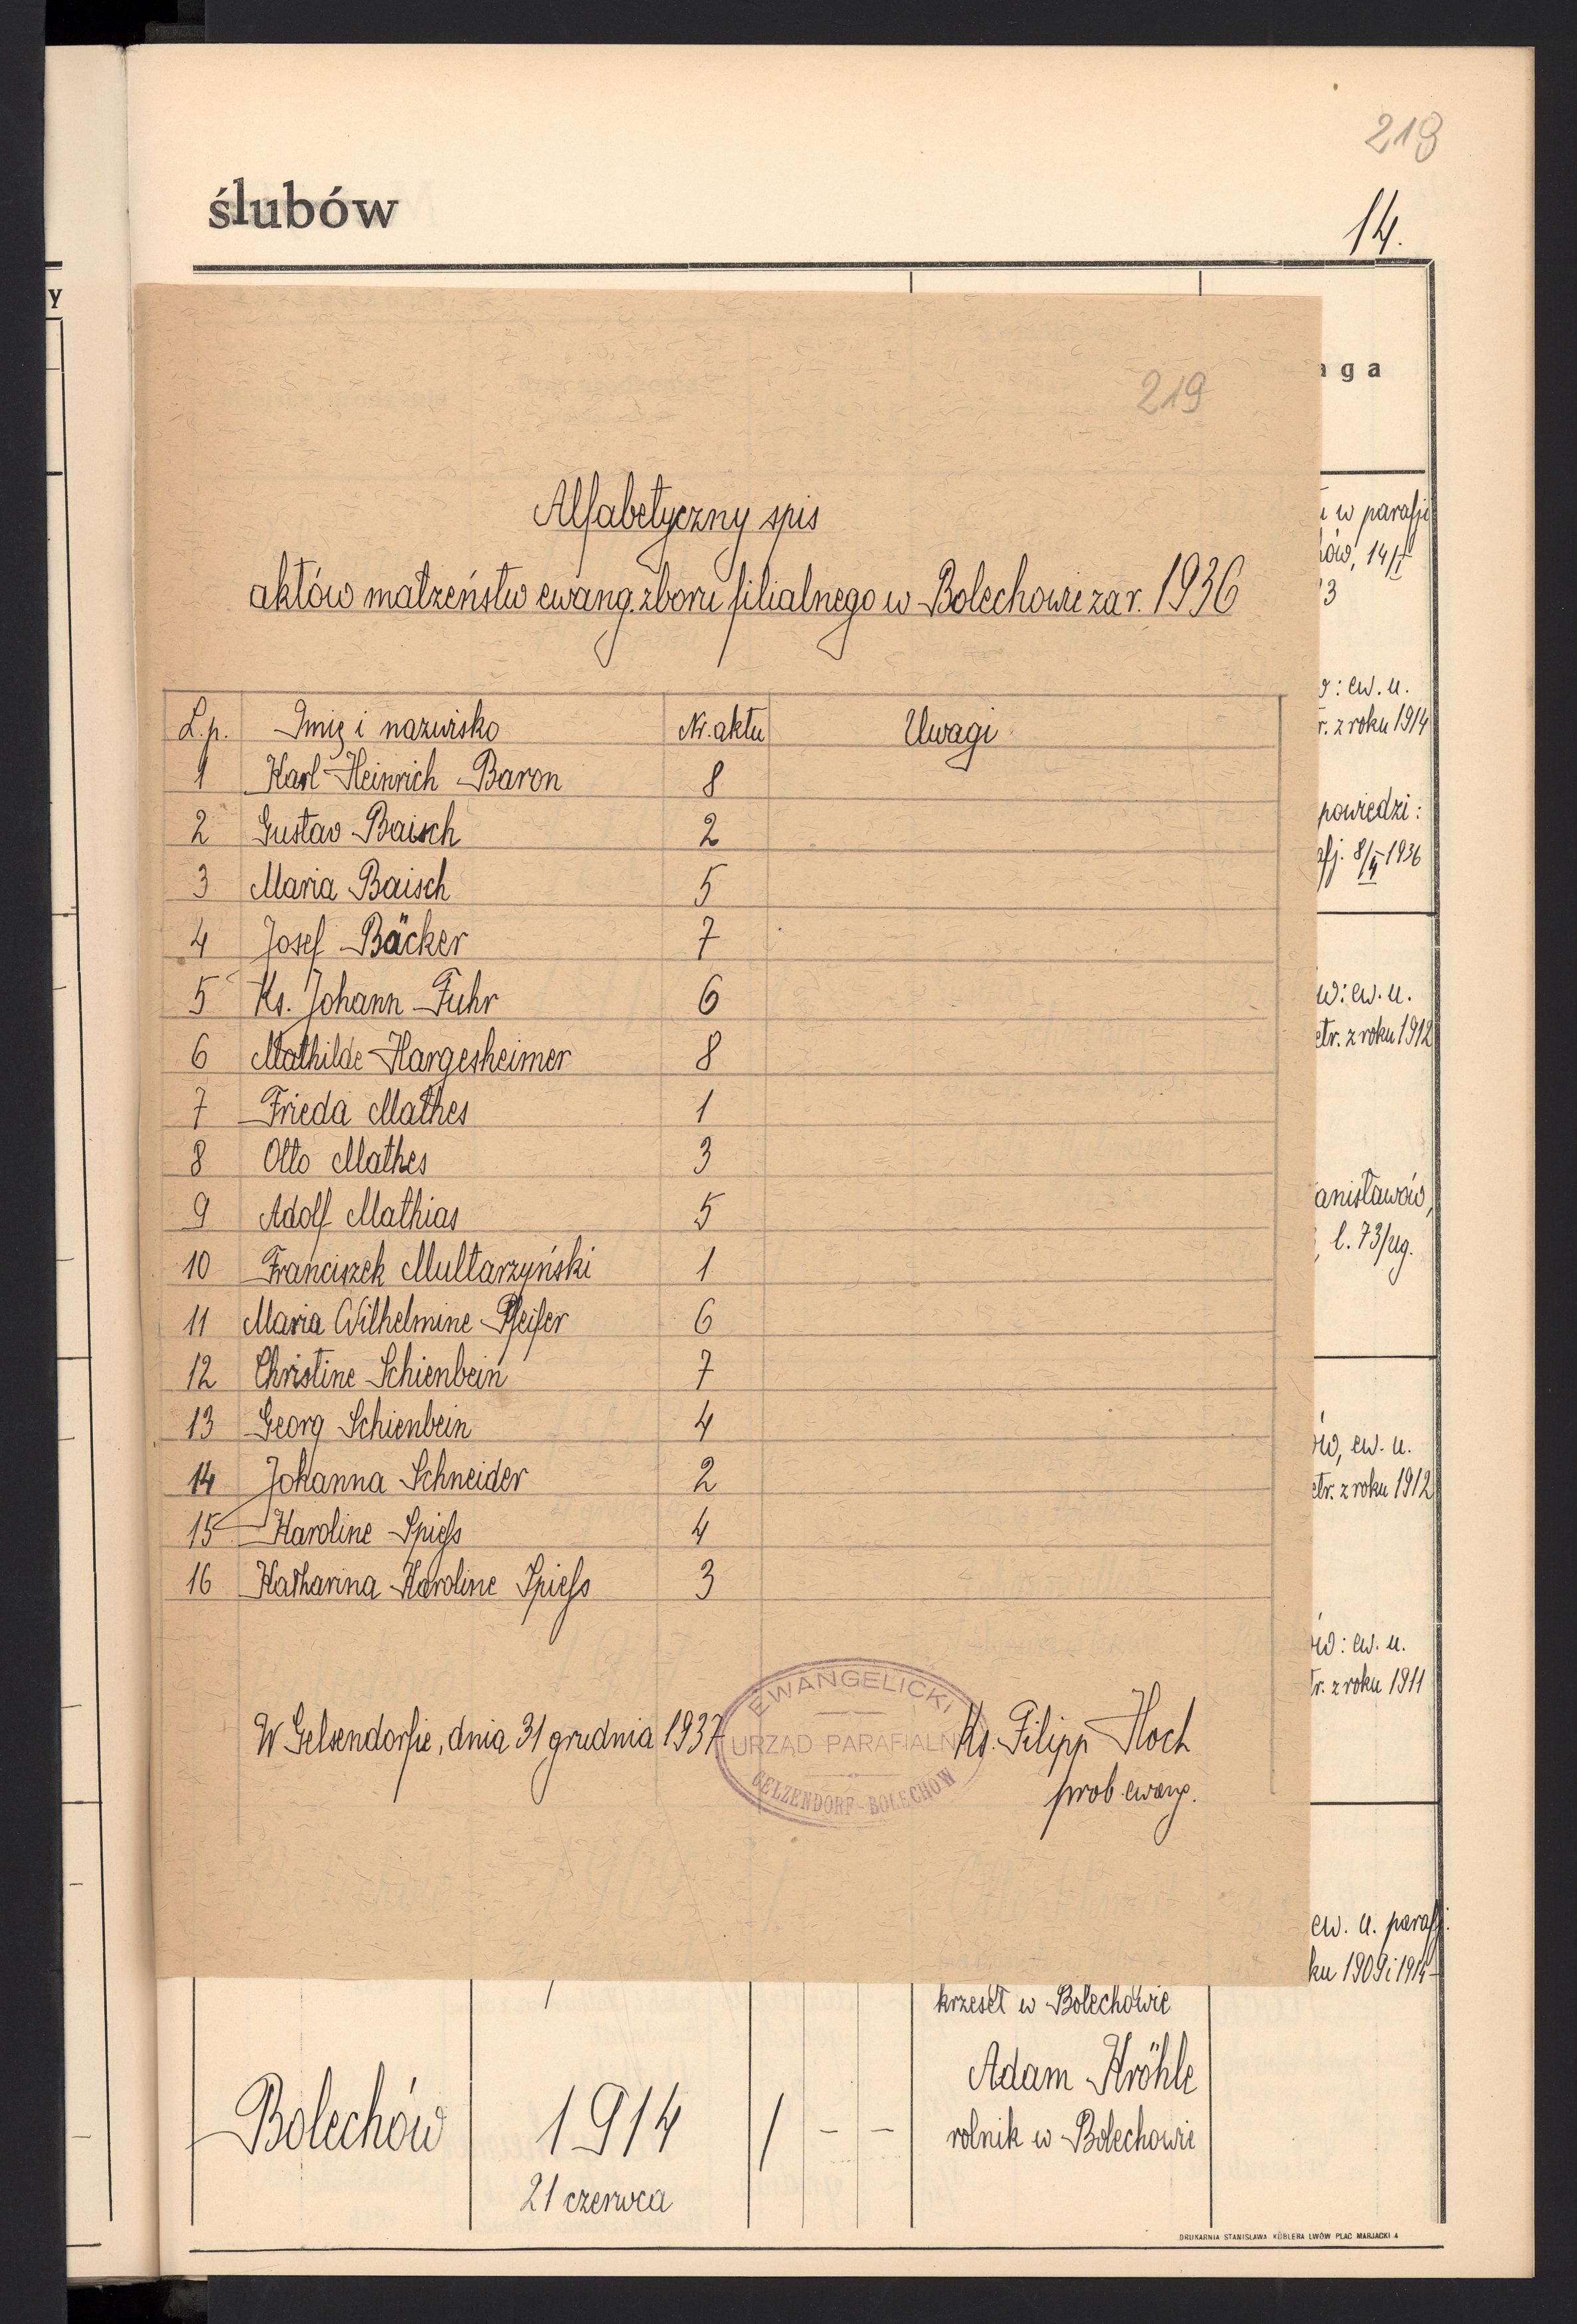 219
ślubów
14.
y
aga
219
Alfabetyczny spis
aktów małżeństw ewang. zboru filialnego w Bolechowie za r. 1936
L.p. Imię i nazwisko Nr. aktu Uwagi
1 Karl Heinrich Baron 8
2 Gustav Baisch 2
3 Maria Baisch 5
4 Josef Bäcker 7
5 Ks. Johann Fuhr 6
6 Mathilde Hargesheimer 8
7 Frieda Mathes 1
8 Otto Mathes 3
9 Adolf Mathias 5
10 Franciszek Multarzyński 1
11 Maria Wilhelmine Pfeifer 6
12 Christine Schienbein 7
13 Georg Schienbein 4
14 Johanna Schneider 2
15 Karoline Spieß 4
16 Katharina Karoline Spieß 3
W Gelsendorfie, dnia 31 grudnia 1937
EWANGELICKI
URZĄD PARAFIALN
GELZENDORF-BOLECHÓW
Ks. Filipp Hoch
prob. ewang.
w parafji
ów, 14/I
3
: ew. u.
r. z roku 1914
powiedzi:
afj. 8/IV 1936
w: ew. u.
etr. z roku 1912
anisławów,
l. 73/ug.
ów, ew. u.
etr. z roku 1912
ów: ew. u.
tr. z roku 1911
ew. u. parafj.
ku 1909 i 1914
krzeseł w Bolechowie
Adam Kröhle
rolnik w Bolechowie
Bolechów 1914 / – –
21 czerwca
DRUKARNIA STANISŁAWA KÜBLERA LWÓW PLAC MARJACKI 4